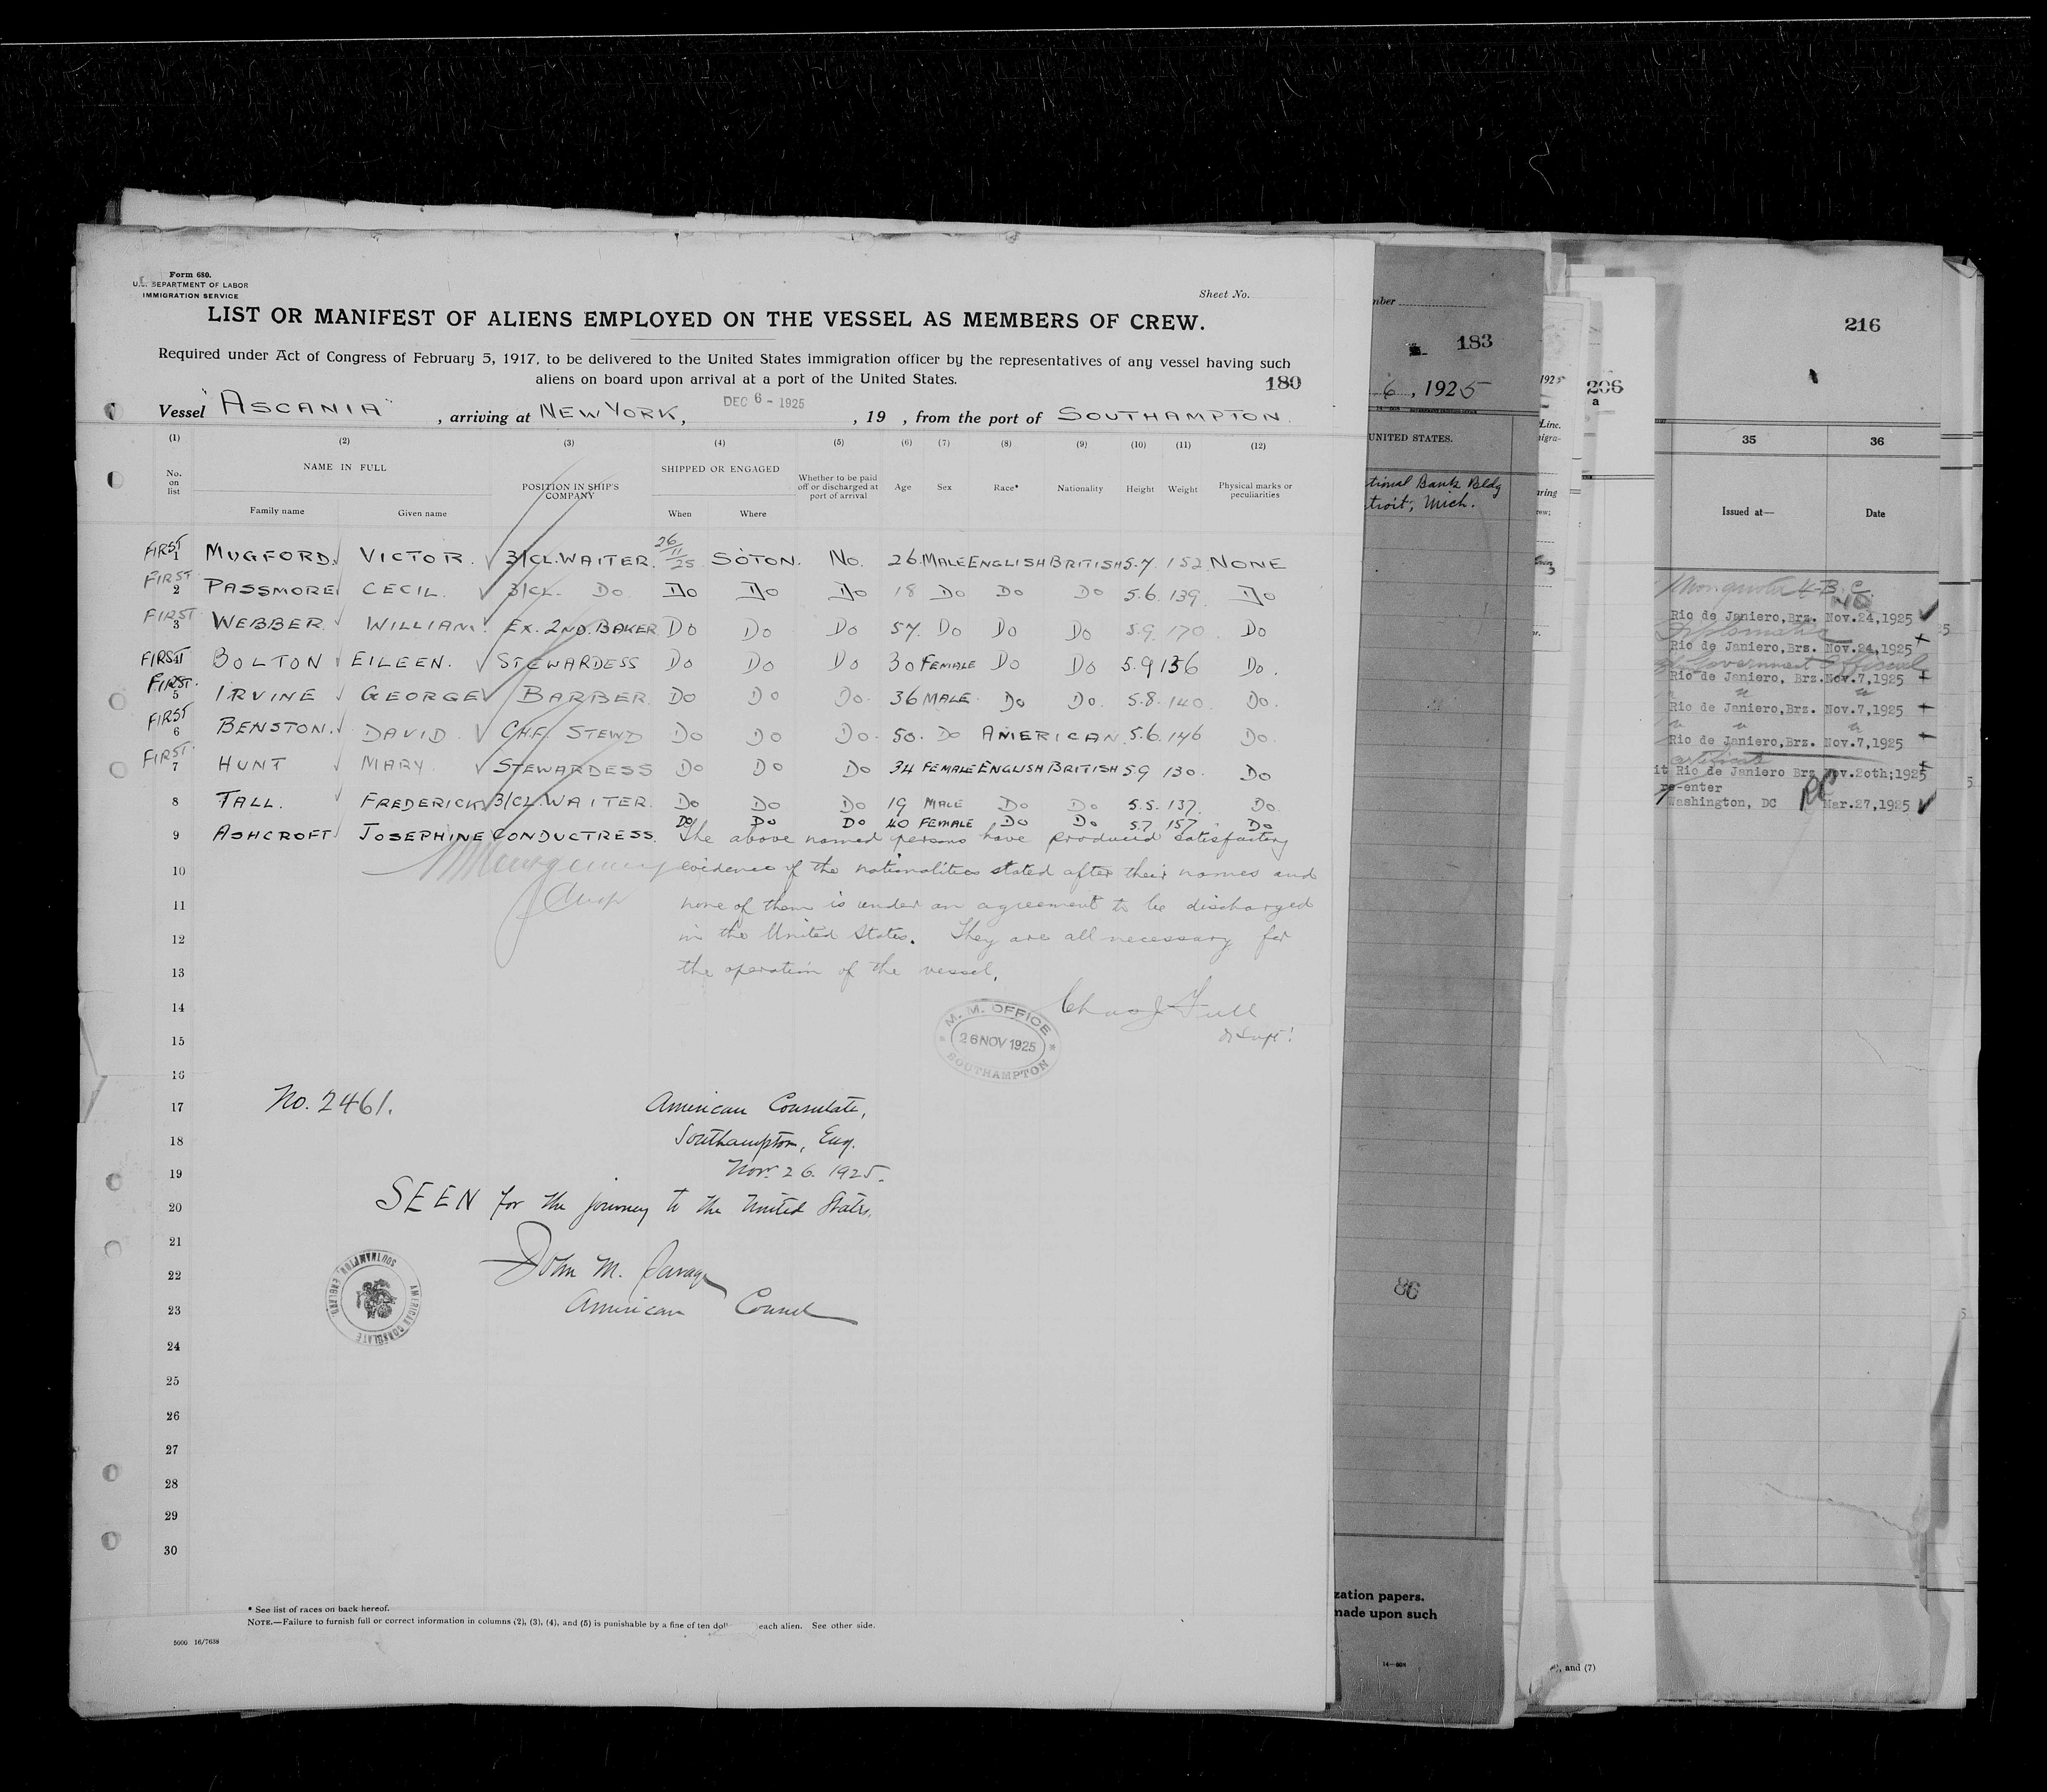 Form 680.
U.S. DEPARTMENT OF LABOR
IMMIGRATION SERVICE
Sheet No.
LIST OR MANIFEST OF ALIENS EMPLOYED ON THE VESSEL AS MEMBERS OF CREW.
Required under Act of Congress of February 5, 1917, to be delivered to the United States immigration officer by the representatives of any vessel having such
aliens on board upon arrival at a port of the United States.
180
Vessel "ASCANIA", arriving at NEW YORK, DEC 6 - 1925, 19 , from the port of SOUTHAMPTON.
(1) (2) (3) (4) (5) (6) (7) (8) (9) (10) (11) (12)
No. on list NAME IN FULL Family name Given name POSITION IN SHIP'S COMPANY SHIPPED OR ENGAGED When Where Whether to be paid off or discharged at port of arrival Age Sex Race* Nationality Height Weight Physical marks or peculiarities
FIRST 1 MUGFORD. VICTOR. 3/CL.WAITER. 26/11/25 SOTON. No. 26. MALE ENGLISH BRITISH 5.7. 152 NONE
FIRST 2 PASSMORE CECIL. 3/CL. Do. Do Do Do 18 Do Do Do 5.6. 139. Do
FIRST 3 WEBBER. WILLIAM. EX. 2ND. BAKER Do Do Do 57. Do Do Do 5.9. 170. Do
FIRST 4 BOLTON EILEEN. STEWARDESS Do Do Do 30 FEMALE Do Do 5.9 156 Do.
FIRST. 5 IRVINE GEORGE BARBER. Do Do Do. 36 MALE. Do Do. 5.8. 140. Do.
FIRST 6 BENSTON. DAVID. CHF. STEWD Do Do Do. 50. Do AMERICAN. 5.6. 146 Do.
FIRST. 7 HUNT MARY. STEWARDESS Do Do Do 34 FEMALE ENGLISH BRITISH 5.9 130. Do
8 TALL. FREDERICK 3/CL.WAITER. Do Do Do 19 MALE Do Do 5.5. 137. Do.
9 ASHCROFT JOSEPHINE CONDUCTRESS. Do Do Do 40 FEMALE Do Do 5.7 157. Do
The above named persons have produced satisfactory
10 evidence of the nationalities stated after their names and
11 none of them is under an agreement to be discharged
12 in the United States. They are all necessary for
13 the operation of the vessel.
14
15
16
M. M. OFFICE
26 NOV 1925
SOUTHAMPTON
17 No. 2461. American Consulate,
18 Southampton, Eng.
19 Nov. 26. 1925.
20 SEEN for the journey to the United States.
21
22 John M. Savage
23 American Consul
AMERICAN CONSULATE SOUTHAMPTON, ENGLAND
24
25
26
27
28
29
30
* See list of races on back hereof.
NOTE.—Failure to furnish full or correct information in columns (2), (3), (4), and (5) is punishable by a fine of ten doll each alien. See other side.
5000 16/7638
nber
183
6, 1925
UNITED STATES.
tional Bank Bldg
troit, Mich.
86
zation papers.
made upon such
1925
Line.
206
a
, and (7)
216
35 36
Issued at— Date
Rio de Janiero,Brz. Nov.24,1925
Diplomatic
Rio de Janiero,Brz. Nov.24,1925
Government Official
Rio de Janiero, Brz. Nov.7,1925
Rio de Janiero,Brz. Nov.7,1925
Rio de Janiero,Brz. Nov.7,1925
it Rio de Janiero Brz Nov.20th;1925
re-enter
Washington, DC Mar.27,1925